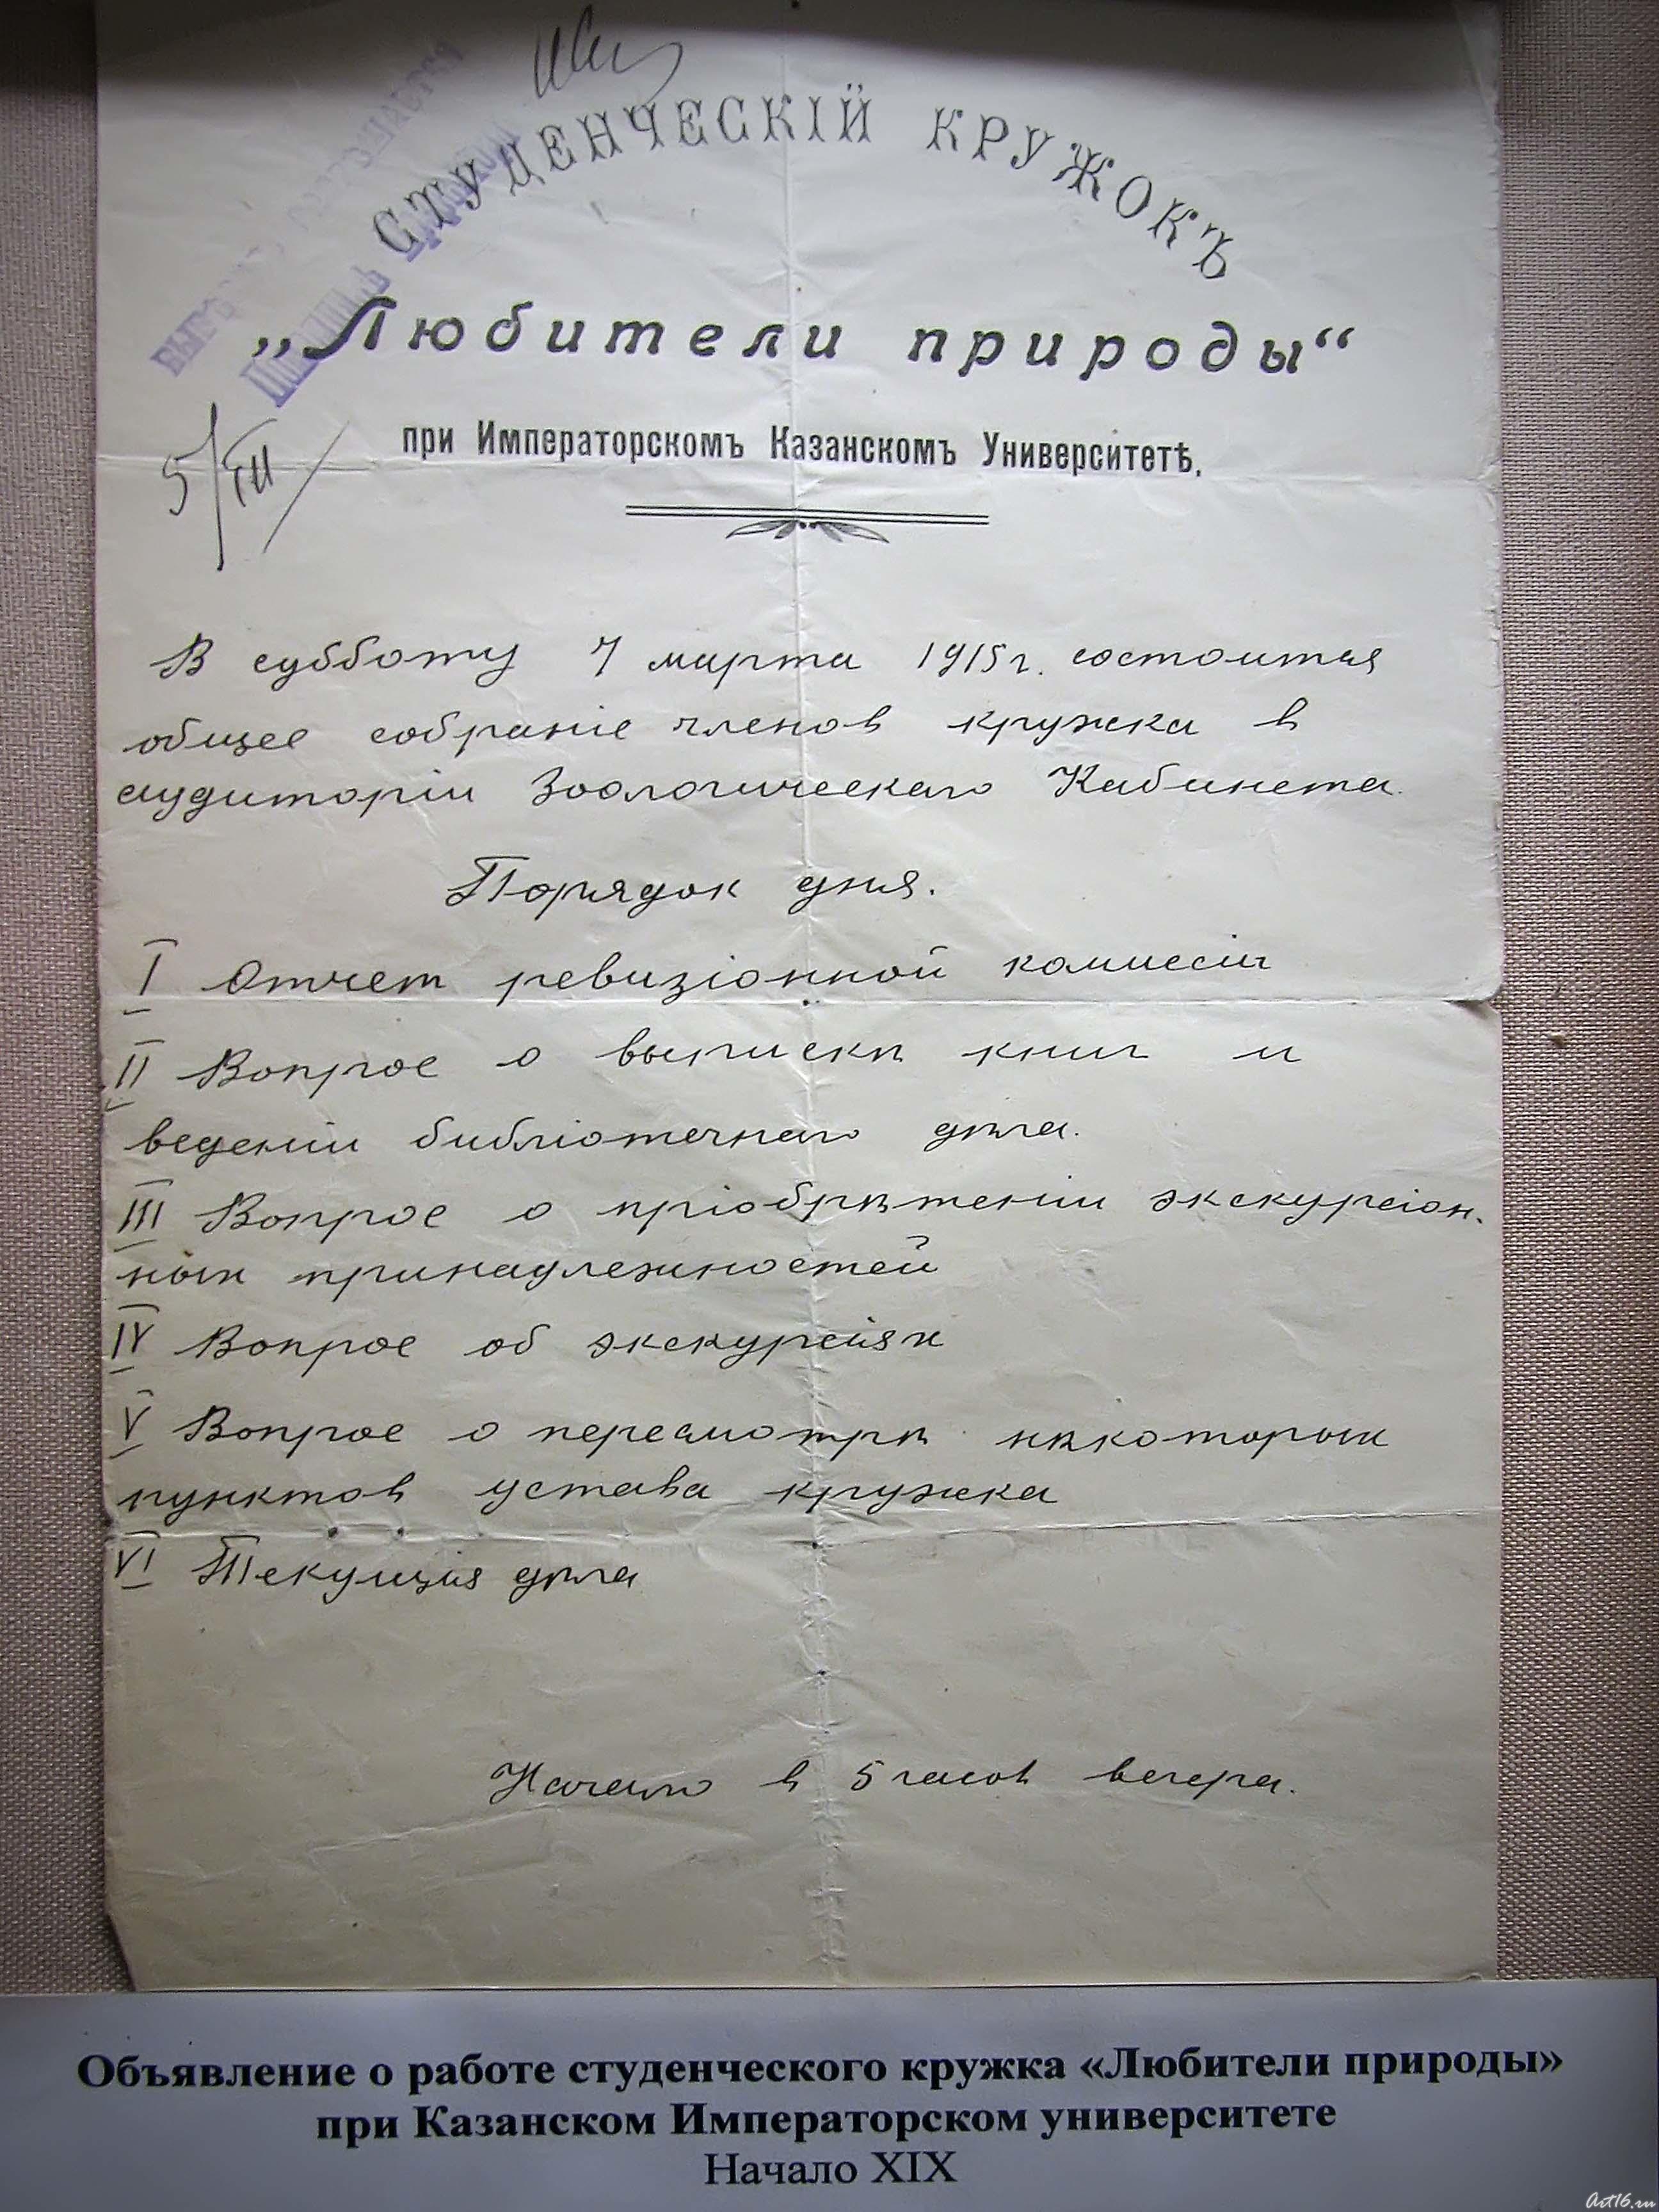 СТУДЕНЧЕСКІЙ КРУЖОКЪ
„Любители природы“
при Императорскомъ Казанскомъ Университетѣ.
5/III
В субботу 7 марта 1915 г. состоится
общее собраніе членов кружка в
аудиторіи Зоологическаго Кабинета.
Порядок дня.
I Отчет ревизіонной комиссіи
II Вопрос о выпискѣ книг и
веденіи библіотечнаго дѣла.
III Вопрос о пріобрѣтеніи экскурсіон-
ных принадлежностей
IV Вопрос об экскурсіях
V Вопрос о пересмотрѣ нѣкоторых
пунктов устава кружка
VI Текущія дѣла
Начало в 5 часов вечера.
Объявление о работе студенческого кружка «Любители природы»
при Казанском Императорском университете
Начало XIX
Art16.ru